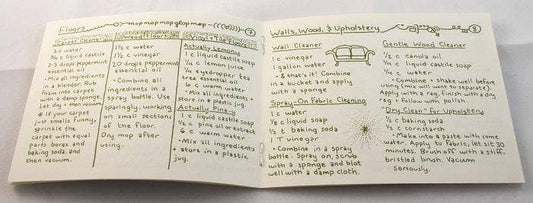 Floors
mop mop mop glop mop
7
Carpet Cleaner
3 c water
¾ c liquid castile
2-3 drops peppermint
essential oil
Mix all ingredients
in a blender. Rub
foam into carpet
with a damp sponge.
Let dry & then vacuum.
* If your carpet
just smells funny,
sprinkle the
carpet with equal
parts borax and
baking soda, and
then vacuum.
1½ c water
1½ c vinegar
20 drops peppermint
essential oil
• Combine all
ingredients in a
spray bottle. Use
sparingly, working
on small sections
of the floor.
Dry mop after
using.
Actually Lemony
1 c liquid castile soap
¼ c lemon juice
eyedropper tea
6 c warm water
• Mix all ingredients +
store in a plastic jug.
Actually Pine-y
1 c liquid castile soap
½ c pine oil extract
6 c warm water
• Mix all ingredients
+ store in a plastic
jug.
Walls, Wood, & Upholstery
8
Wall Cleaner
1 c vinegar
1 gallon water
• & that's it! Combine
in a bucket and apply
with a sponge
Spray-On Fabric Cleaning
1 c water
¼ c liquid soap
½ c baking soda
1 T vinegar
• Combine in a spray
bottle. Spray on, scrub
with a sponge and blot
well with a damp cloth.
Gentle Wood Cleaner
½ c canola oil
¼ c liquid castile soap
¼ c water
• Combine + shake well before
using (mix will want to separate).
Apply with a rag, rinse with a dry
rag + follow with polish.
"Dry Clean" for Upholstery
½ c baking soda
½ c cornstarch
• Make into a paste with some
water. Apply to fabric, let sit 30
minutes. Brush off with a stiff-
bristled brush. Vacuum
seriously.